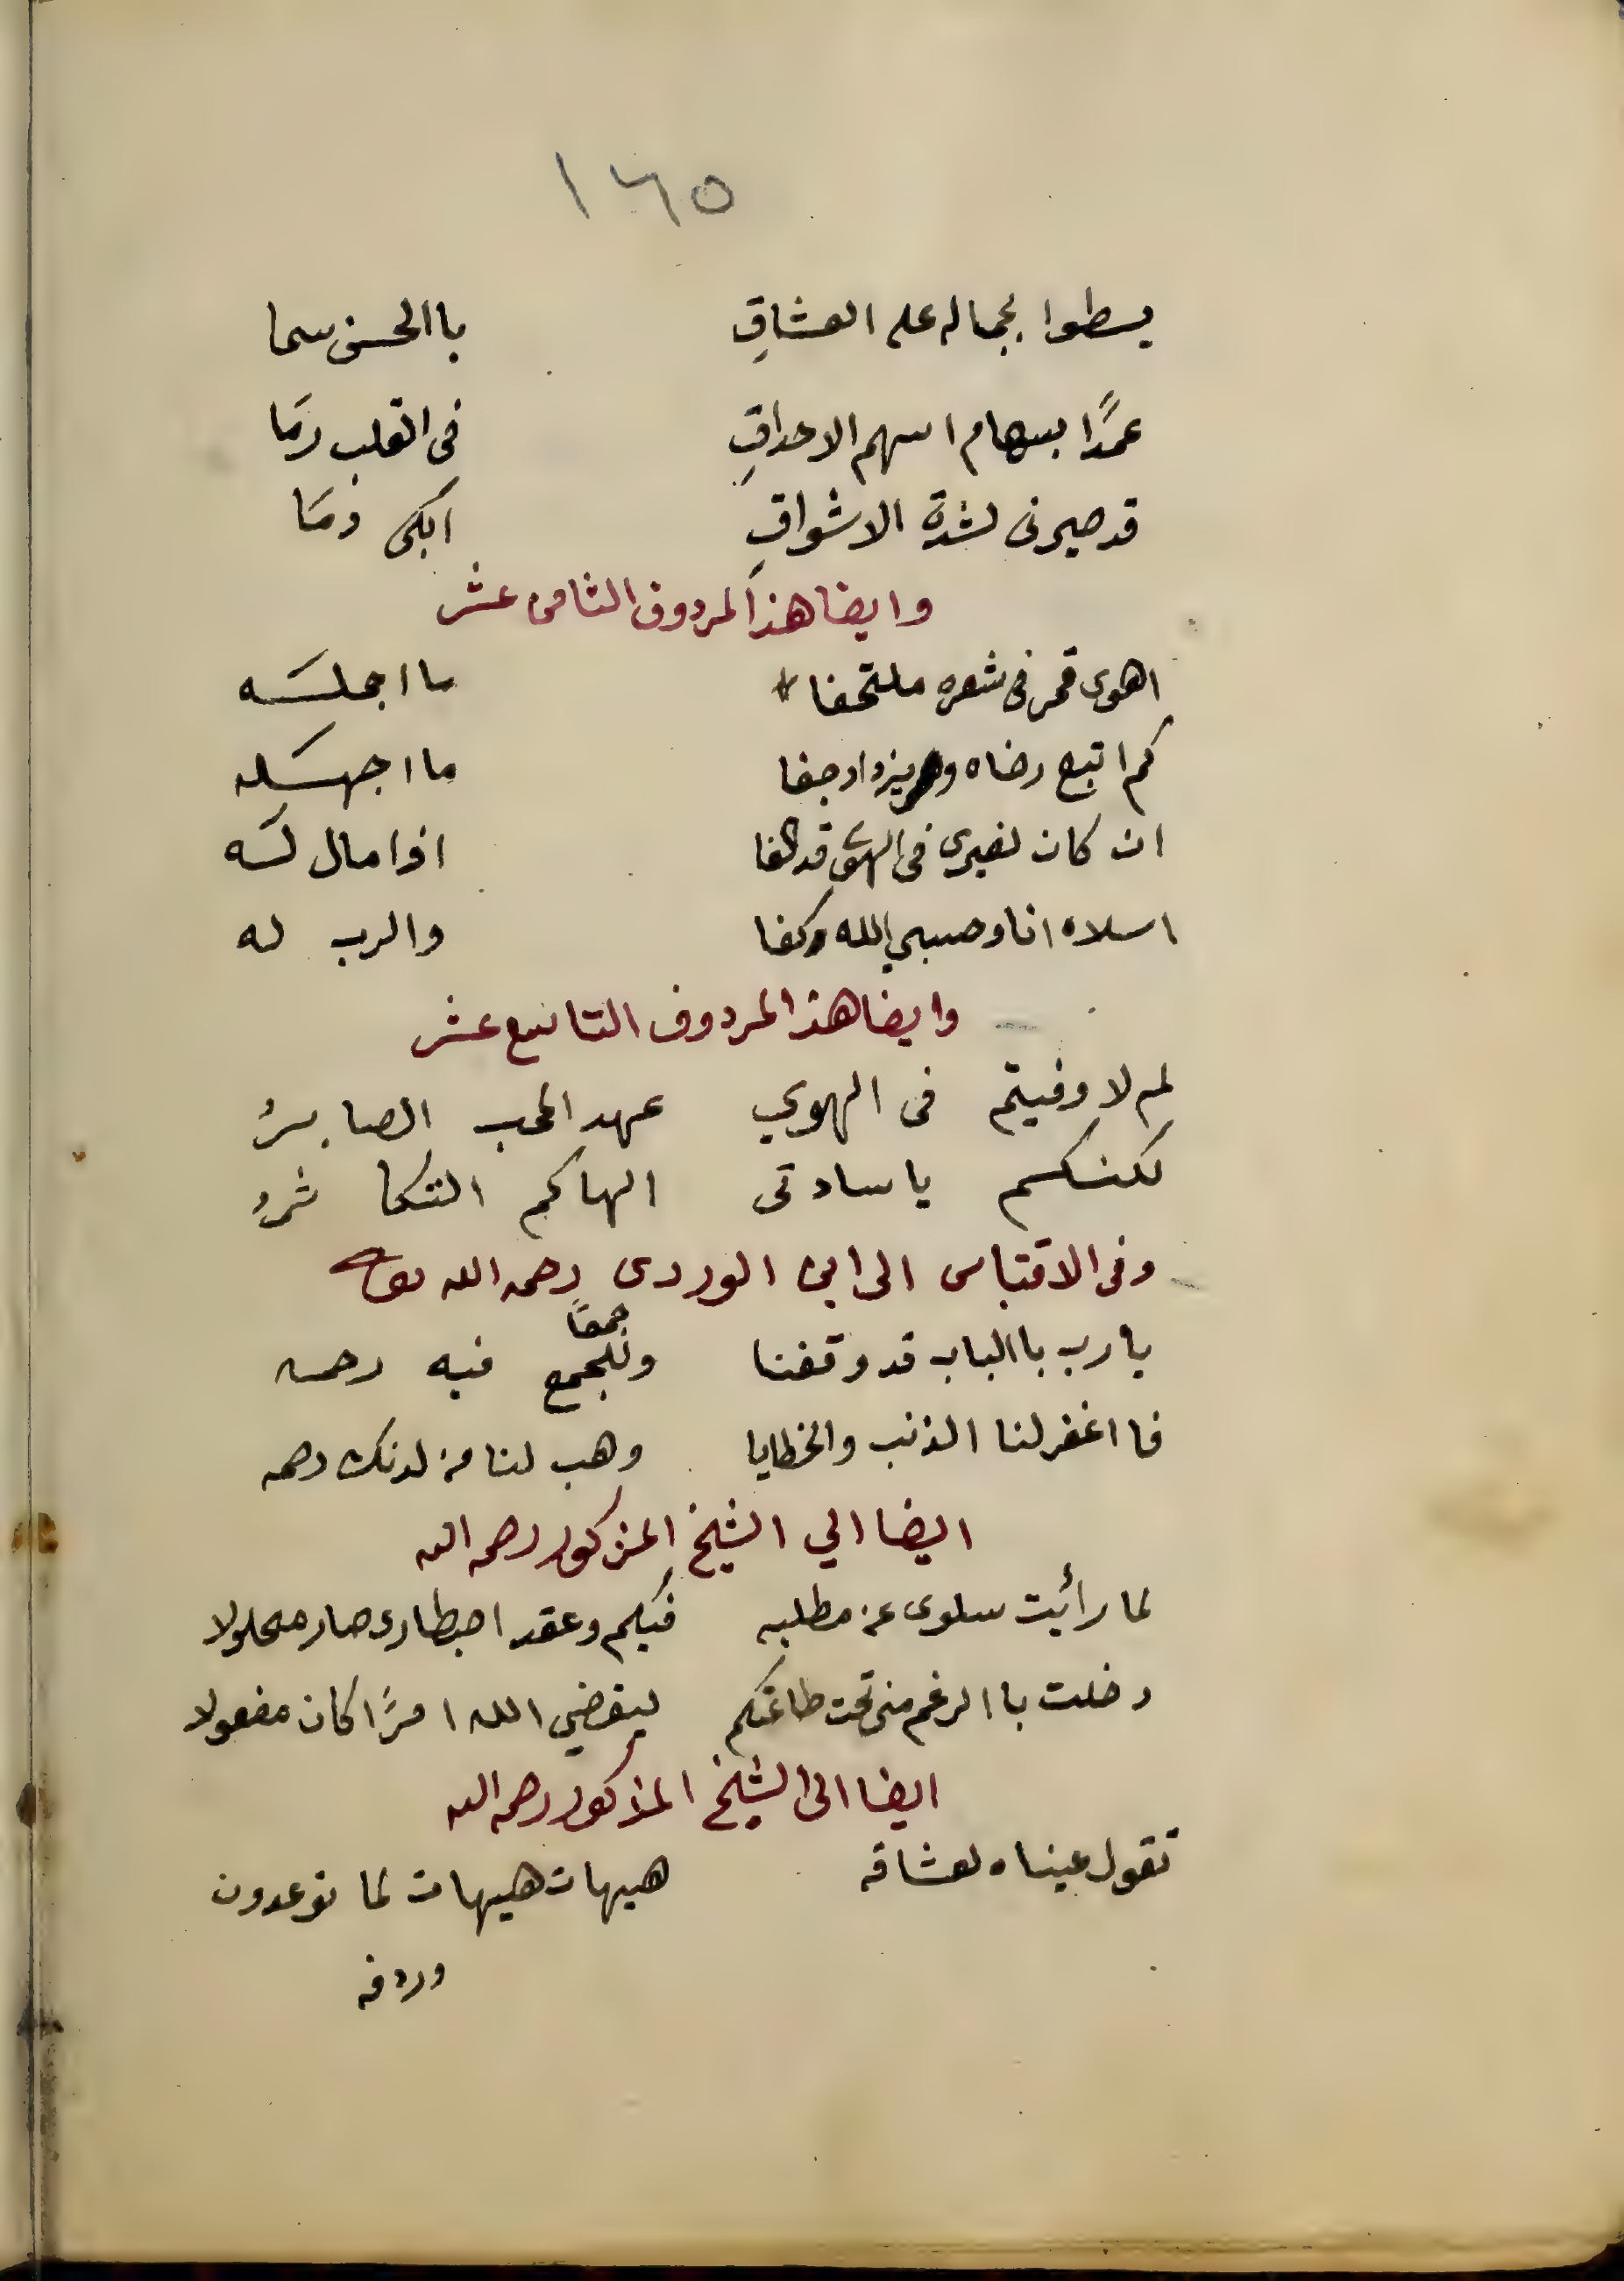 ١٦٥
يسطوا بجماله على العشاقِ باالحسن سما
عمدًا بسهام اسهم الاحداقِ فى القلب رمَا
قد صيرنى لشدة الاشواقِ ابكى دمَا
وايضا هذا المردوف الثامن عشر
اهوى قمر فى شعره ملتحفا ما اجملَه
كم اتبع رضاه وهو يزداد جفا ما اجهَله
ان كان لغيرى فى الهوى قد الفا اذا مال لَه
اسلاه انا وحسبي الله وكفا والرب له
وايضا هذا المردوف التاسع عشر
لم لا وفيتم فى الهوي عهد المحب الصابرُ
لكنكم يا سادتى الهاكم التكاثرُ
وفى الاقتباس الى ابن الوردى رحمه الله تعالى
يارب باالباب قد وقفنا جمعًا وللجمع فيه رحمه
فااغفر لنا الذنب والخطايا وهب لنا من لدنك رحمه
ايضا الي الشيخ المذكور رحمه الله
لما رأيت سلوى عز مطلبه فيكم وعقد اصطبارى صار محلولا
دخلت باالرغم منى تحت طاعتكم ليقضي الله امرًا كان مفعولا
ايضا الى الشيخ المذكور رحمه الله
تقول عيناه لعشاقه هيهات هيهات لما توعدون
وردفه